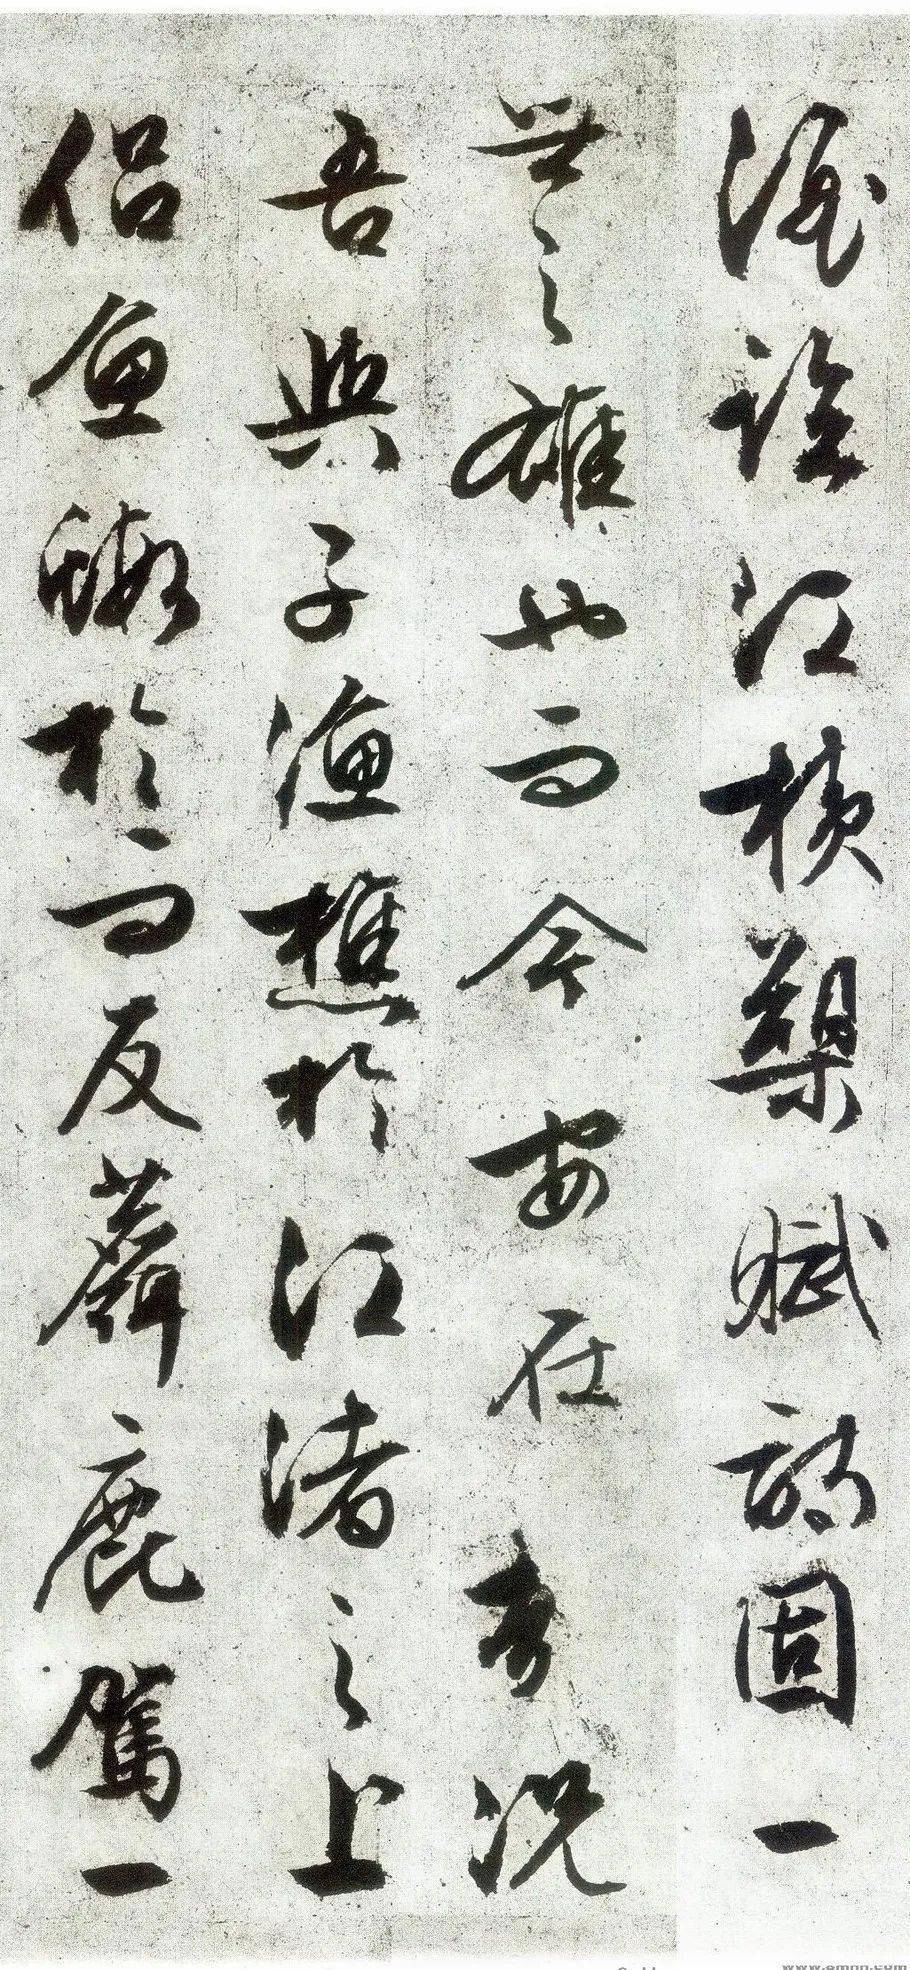 酒臨江橫槊賦詩固一
世之雄也而今安在哉況
吾與子漁樵於江渚之上
侶魚蝦於而友麋鹿駕一